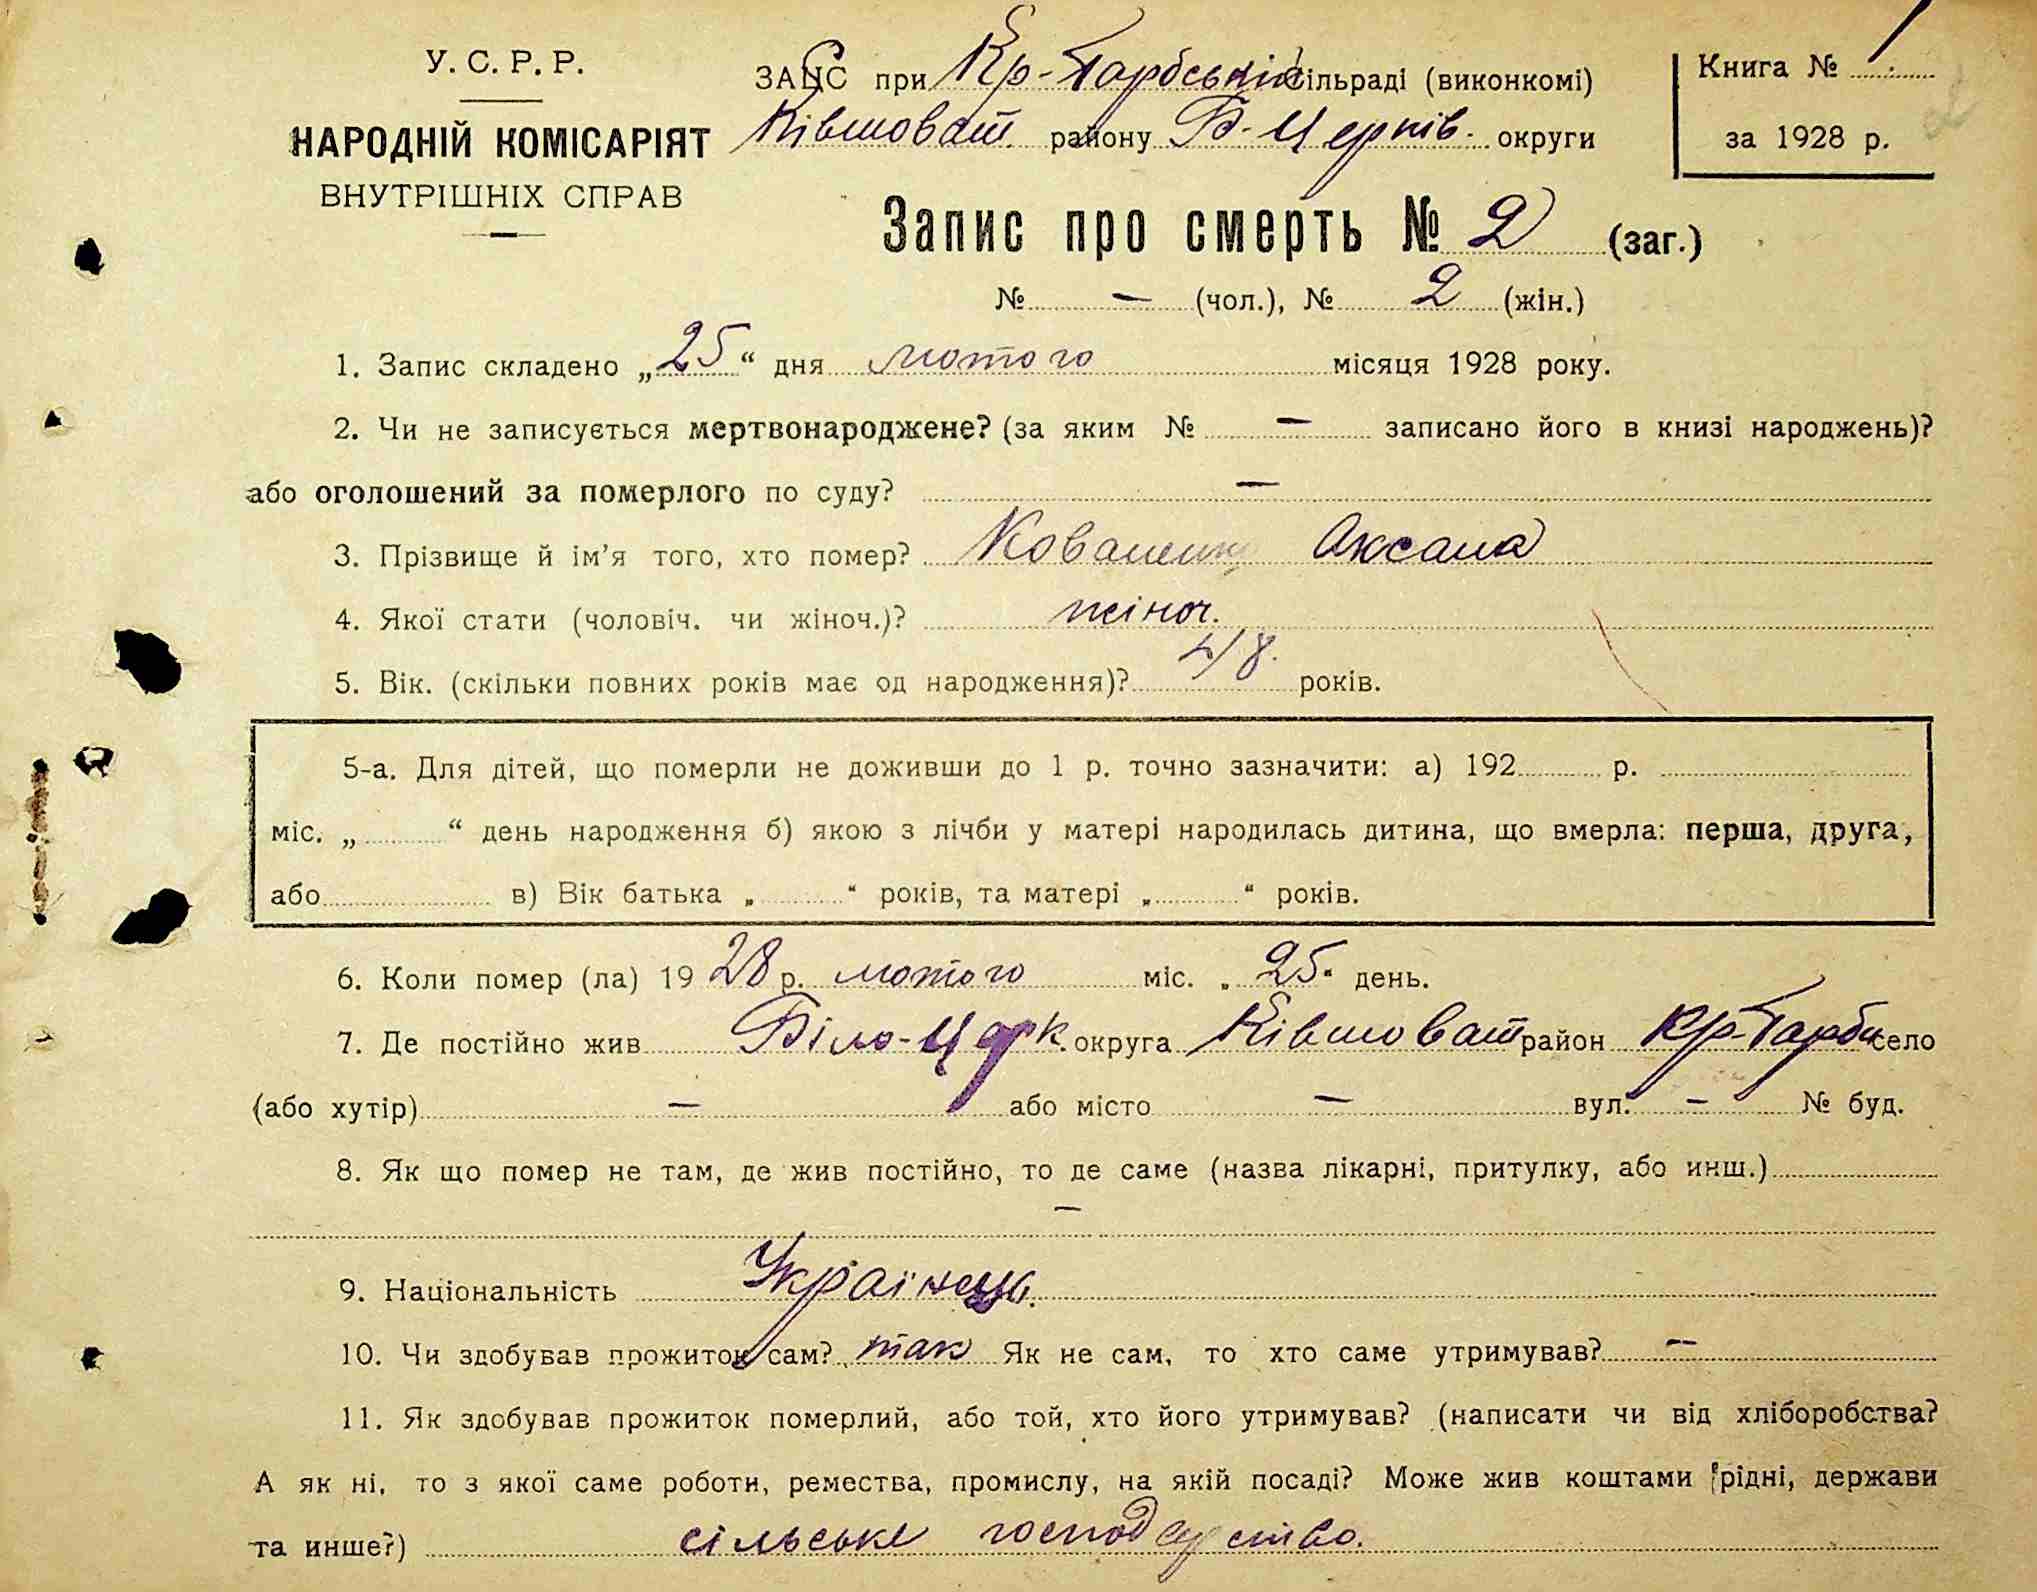 У. С. Р. Р.
НАРОДНІЙ КОМІСАРІЯТ
ВНУТРІШНІХ СПРАВ
ЗАГС при Кр-Гарбській сільраді (виконкомі)
Ківшоват. району Б-Церків. округи
Книга № 1
за 1928 р.
Запис про смерть № 2 (заг.)
№ — (чол.), № 2 (жін.)
1. Запис складено „25“ дня лютого місяця 1928 року.
2. Чи не записується мертвонароджене? (за яким № — записано його в книзі народжень)?
або оголошений за померлого по суду? —
3. Прізвище й ім’я того, хто помер? Коваленко Оксана
4. Якої стати (чоловіч. чи жіноч.)? жіноч.
5. Вік. (скільки повних років має од народження)? 48. років.
5-а. Для дітей, що померли не доживши до 1 р. точно зазначити: а) 192 р.
міс. „ “ день народження б) якою з лічби у матері народилась дитина, що вмерла: перша, друга,
або в) Вік батька „ “ років, та матері „ “ років.
6. Коли помер (ла) 1928 р. лютого міс. „25“ день.
7. Де постійно жив Біло-Церк. округа Ківшоват район Кр-Гарби село
(або хутір) — або місто — вул. — № буд.
8. Як що помер не там, де жив постійно, то де саме (назва лікарні, притулку, або инш.)
—
9. Національність Українець.
10. Чи здобував прожиток сам? так Як не сам, то хто саме утримував? —
11. Як здобував прожиток померлий, або той, хто його утримував? (написати чи від хліборобства?
А як ні, то з якої саме роботи, ремества, промислу, на якій посаді? Може жив коштами рідні, держави
та инше?) сільське господарство.